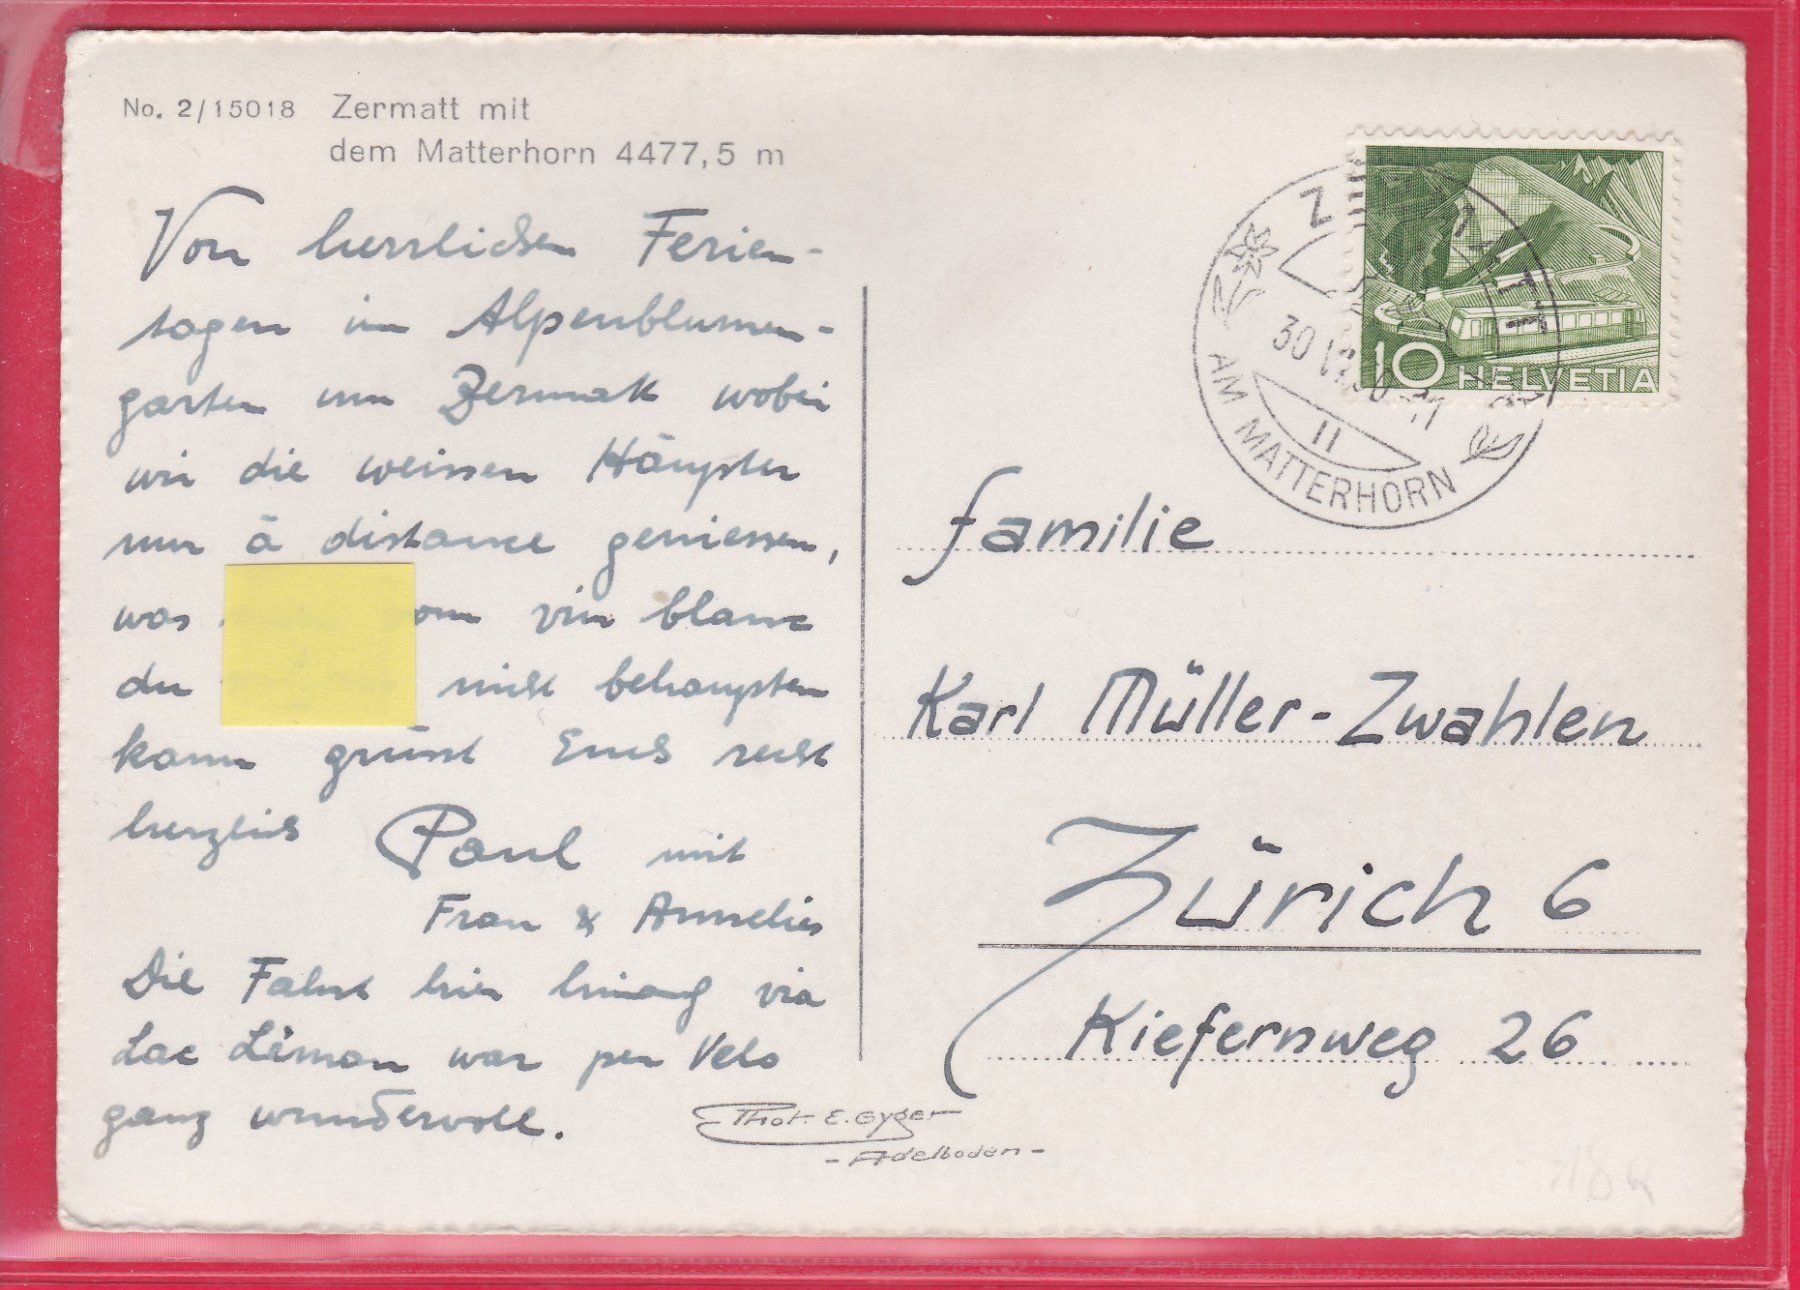 No. 2/15018 Zermatt mit
dem Matterhorn 4477,5 m
Von herrlichen Ferien-
tagen im Alpenblumen-
garten um Zermatt wobei
wir die weissen Häupter
nur à distance geniessen,
was vom vin blanc
du nicht behaupten
kann grüsst Euch recht
herzlich Paul mit
Frau & Annelies
Die Fahrt hier hinauf via
Lac Léman war per Velo
ganz wundervoll.
Phot. E. Gyger
- Adelboden -
ZERMATT
30
11
II
AM MATTERHORN
10 HELVETIA
Familie
Karl Müller-Zwahlen
Zürich 6
Kiefernweg 26